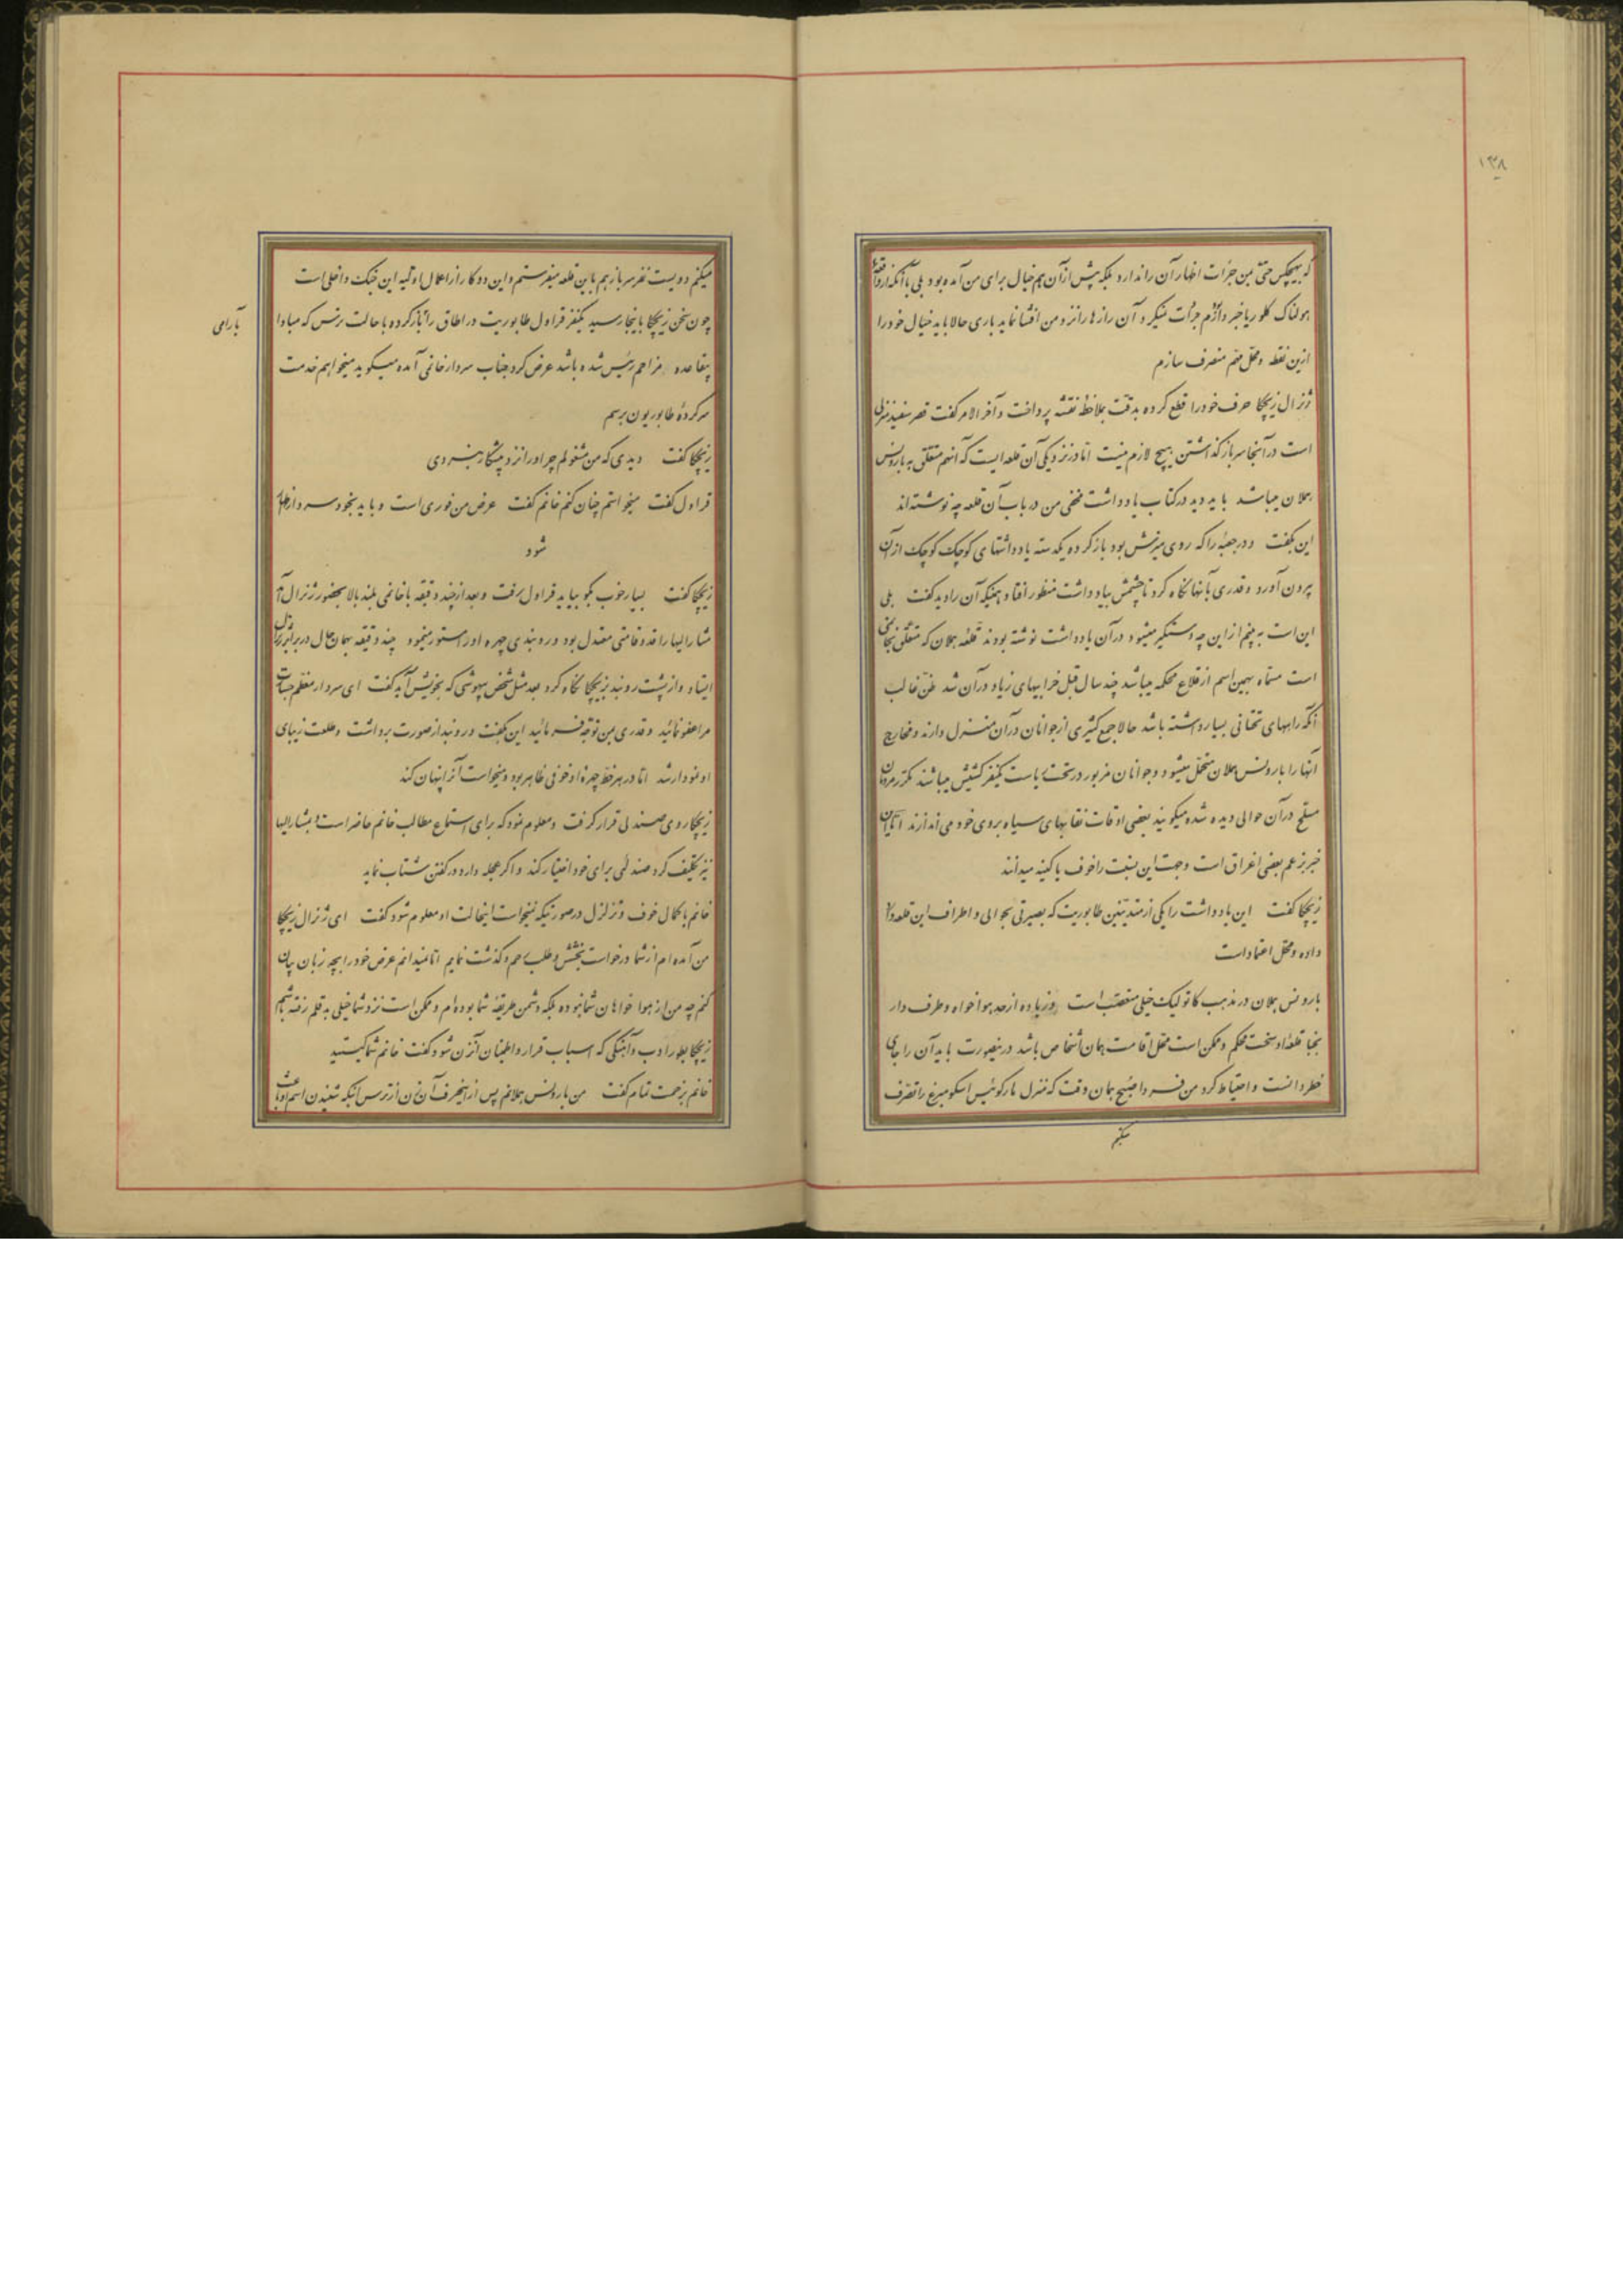 ۱۳۸
که بهیچکس حتی بمن جرأت اظهار آن را ندارد بلکه پیش از آن هم خیال برای من آمده بود بلی با آنکه از واقعهٔ
هولناک کلوریا خبر دارم جرأت نمیکرد آن رازها را نزد من افشا نماید باری حالا باید خیال خود را
ازین نقطه و محل مهم منصرف سازم
ژنرال زیچکا حرف خود را قطع کرده بدقت بملاحظهٔ نقشه پرداخت و آخر الامر گفت قصر سفید منزلی
است در آنجا سرباز گذاشتن هیچ لازم نیست اما در نزدیکی آن قلعه ایست که آنهم متعلق به بارونس
هملان میباشد باید دید در کتاب یادداشت مخفی من در باب آن قلعه چه نوشته‌اند
این بگفت و در جعبهٔ را که روی میزش بود باز کرده یکدسته یادداشتهای کوچک کوچک از آن
بیرون آورد و قدری بآنها نگاه کرد تا چشمش بیادداشت منظور افتاد و همینکه آن را دید گفت بلی
این است به بینم از این چه دستگیر میشود در آن یادداشت نوشته بودند قلعه هملان که متعلق بخانمی
است مسماة بهمین اسم از قلاع محکمه میباشد چند سال قبل خرابیهای زیاد در آن شد ظن غالب
آنکه راههای تحتانی بسیار داشته باشد حالا جمع کثیری از جوانان در آن منزل دارند و مخارج
آنها را بارونس هملان متحمل میشود و جوانان مزبور در تحت ریاست یکنفر کشیش میباشند مکرر مردمان
مسلح در آن حوالی دیده شده میگویند بعضی اوقات نقابهای سیاه بروی خود می اندازند اما این
خبر بزعم بعضی اغراق است و جهت این نسبت را خوف یا کینه میدانند
زیچکا گفت این یادداشت را یکی از متدینین طابوریت که بصیرتی بحوالی و اطراف این قلعه دارد
داده و محل اعتماد است
بارونس هملان در مذهب کاتولیک خیلی متعصب است و زیاده از حد هوا خواه و طرف دار
قلعهٔ او سخت محکم و ممکن است محل اقامت همان اشخاص باشد در اینصورت باید آن را جای
خطر دانست و احتیاط کرد من فردا صبح همان وقت که منزل مارکوئیس اسکومبرغ را تصرف
میکنم
میکنم دویست نفر سرباز هم باین قلعه میفرستم و این دو کار از اعمال اولیه این جنگ داخلی است
چون سخن زیچکا باینجا رسید یکنفر قراول طابوریت در اطاق را بازکرده با حالت ترس که مبادا
بآرامی
بیقاعده مزاحم رئیس شده باشد عرض کرد جناب سردار خانمی آمده میگوید میخواهم خدمت
سرکردهٔ طابوریون برسم
زیچکا گفت دیدی که من مشغولم چرا او را نزد پیشکار نبردی
قراول گفت میخواستم چنان کنم خانم گفت عرض من فوری است و باید بخود سردار اظهار
شود
زیچکا گفت بسیار خوب بگو بیاید قراول رفت و بعد از چند دقیقه با خانمی بلند بالا بحضور ژنرال آمد
مشارالیها را قد و قامتی معتدل بود و روبندی چهره او را مستور مینمود چند دقیقه بهمان حال در برابر ژنرال
ایستاد و از پشت روبند بزیچکا نگاه کرد بعد مثل شخص بیهوشی که بخویش آید گفت ای سردار معظم جسارت
مرا عفو نمائید و قدری بمن توجه فرمائید این بگفت و روبند از صورت برداشت و طلعت زیبای
او نمودار شد اما در هر خط چهرهٔ او خوفی ظاهر بود و میخواست آنرا پنهان کند
زیچکا روی صندلی قرار گرفت و معلوم نمود که برای استماع مطالب خانم حاضر است و بمشارالیها
نیز تکلیف کرد صندلئی برای خود اختیار کند و اگر عجله دارد در گفتن شتاب نماید
خانم با کمال خوف و تزلزل در صورتیکه نمیخواست اینحالت او معلوم شود گفت ای ژنرال زیچکا
من آمده‌ام از شما درخواست بخشش و طلب رحم و گذشت نمایم اما نمیدانم عرض خود را بچه زبان بیان
کنم چه من از هوا خواهان شما نبوده بلکه دشمن طریقهٔ شما بوده‌ام و ممکن است نزد شما خیلی به قلم رفته باشم
زیچکا بطور ادب و آهنگی که اسباب قرار و اطمینان آنزن شود گفت خانم شما کیستید
خانم بزحمت تمام گفت من بارونس هملانم پس از اینحرف آن زن از ترس آنکه شنیدن اسم او باعث